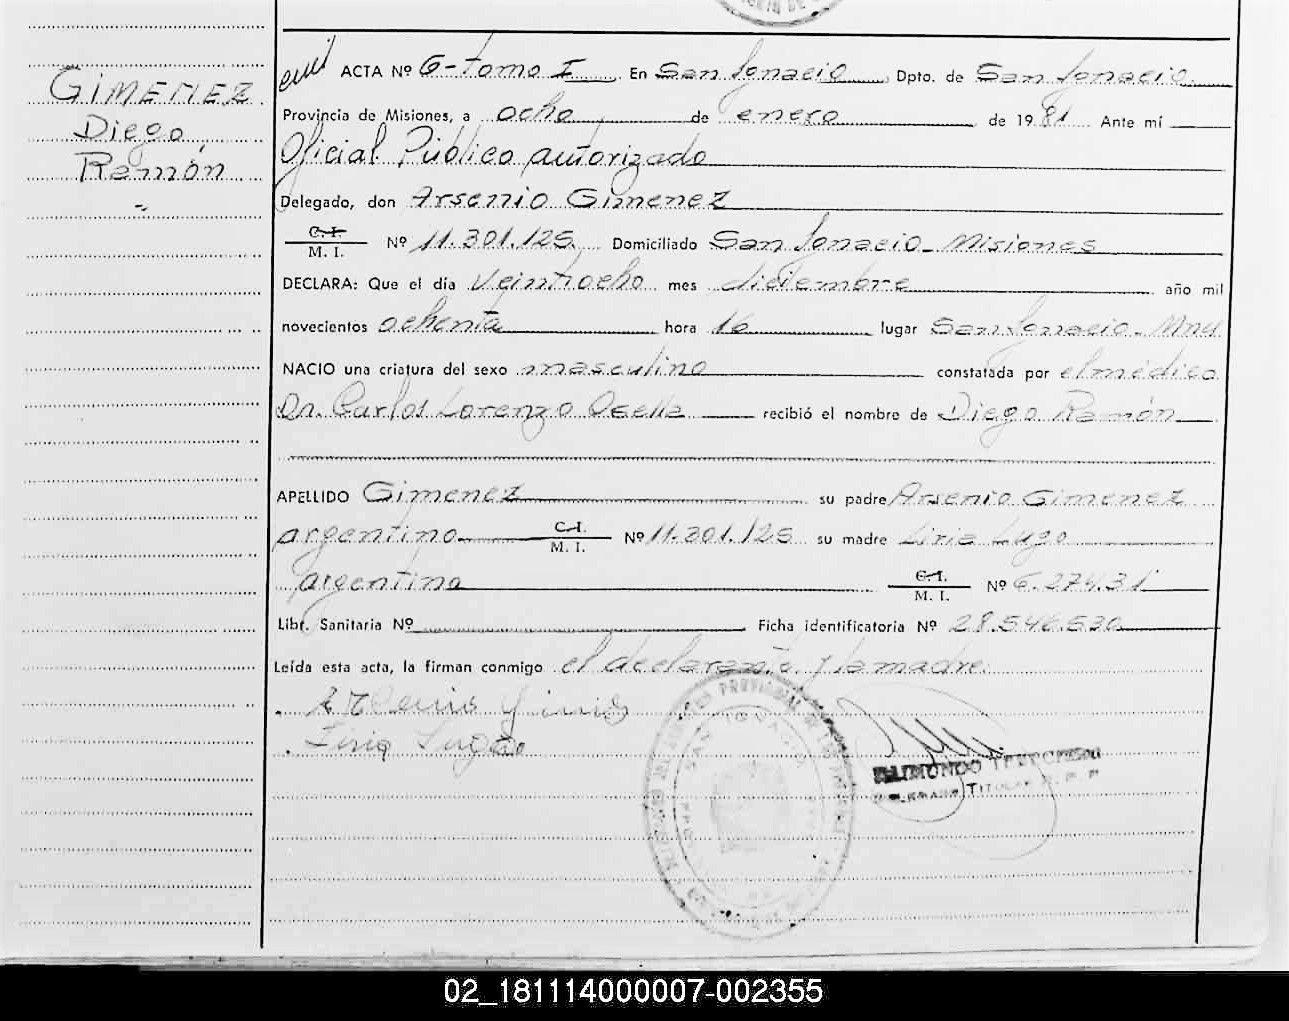 GIMENEZ
Diego
Ramón
ACTA Nº 6-Tomo I En San Ignacio Dpto. de San Ignacio
Provincia de Misiones, a ocho de enero de 1981 Ante mí
Oficial Público autorizado
Delegado, don Arsenio Gimenez
C. I.
M. I. Nº 11.301.125 Domiciliado San Ignacio - Misiones
DECLARA: Que el día veintiocho mes diciembre año mil
novecientos ochenta hora 16 lugar San Ignacio - Mnes
NACIO una criatura del sexo masculino constatada por el médico
Dr. Carlos Lorenzo Osella recibió el nombre de Diego Ramón
APELLIDO Gimenez su padre Arsenio Gimenez
argentino C.I. M. I. Nº 11.301.125 su madre Liria Lugo
argentina C.I. M. I. Nº 6.274.31
Libr. Sanitaria Nº Ficha identificatoria Nº 28.546.530
Leída esta acta, la firman conmigo el declarante y la madre.
Liria Lugo
PROVINCIAL DE LAS
SAN IGNACIO
RAIMUNDO
TITULAR R. P. P.
02_181114000007-002355